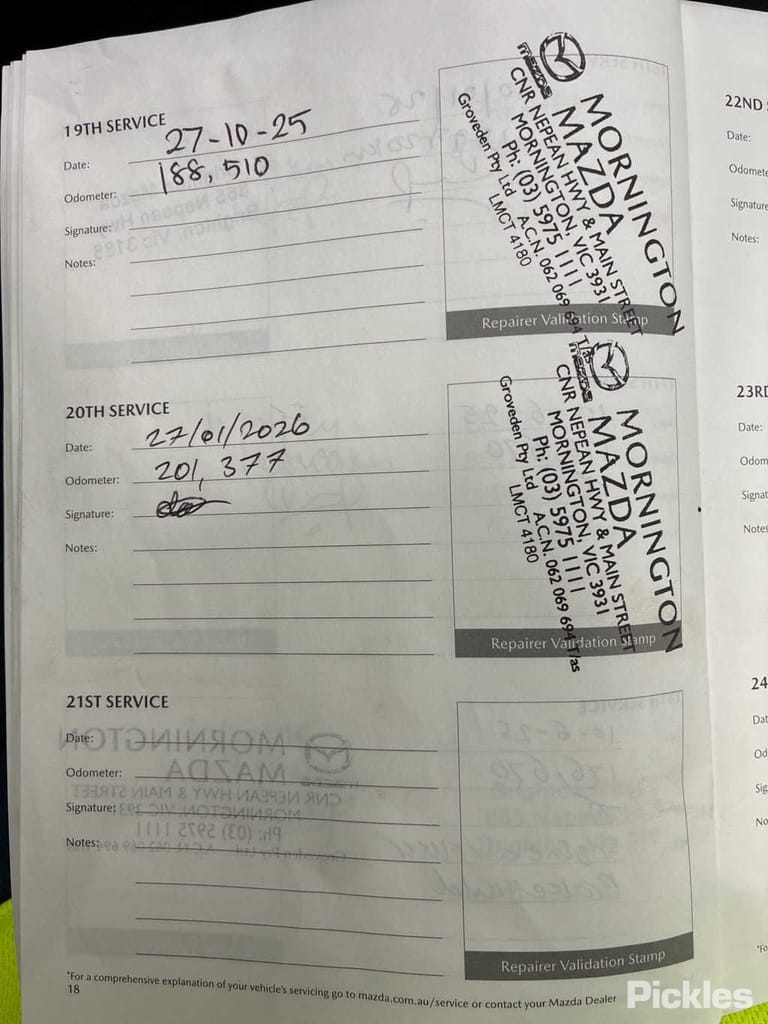 19TH SERVICE
Date: 27-10-25
Odometer: 188,510
Signature:
Notes:
mazda
MORNINGTON
MAZDA
CNR NEPEAN HWY & MAIN STREET
MORNINGTON, VIC 3931
Ph: (03) 5975 1111
Groveden Pty Ltd A.C.N. 062 069 694 T/as
LMCT 4180
Repairer Validation Stamp
20TH SERVICE
Date: 27/01/2026
Odometer: 201,377
Signature:
Notes:
mazda
MORNINGTON
MAZDA
CNR NEPEAN HWY & MAIN STREET
MORNINGTON, VIC 3931
Ph: (03) 5975 1111
Groveden Pty Ltd A.C.N. 062 069 694 T/as
LMCT 4180
Repairer Validation Stamp
21ST SERVICE
Date:
Odometer:
Signature:
Notes:
Repairer Validation Stamp
*For a comprehensive explanation of your vehicle's servicing go to mazda.com.au/service or contact your Mazda Dealer
18
22ND
Date:
Odomete
Signature
Notes:
23RD
Date:
Odom
Signat
Notes
24
Dat
Od
Sig
No
*Fo
Pickles